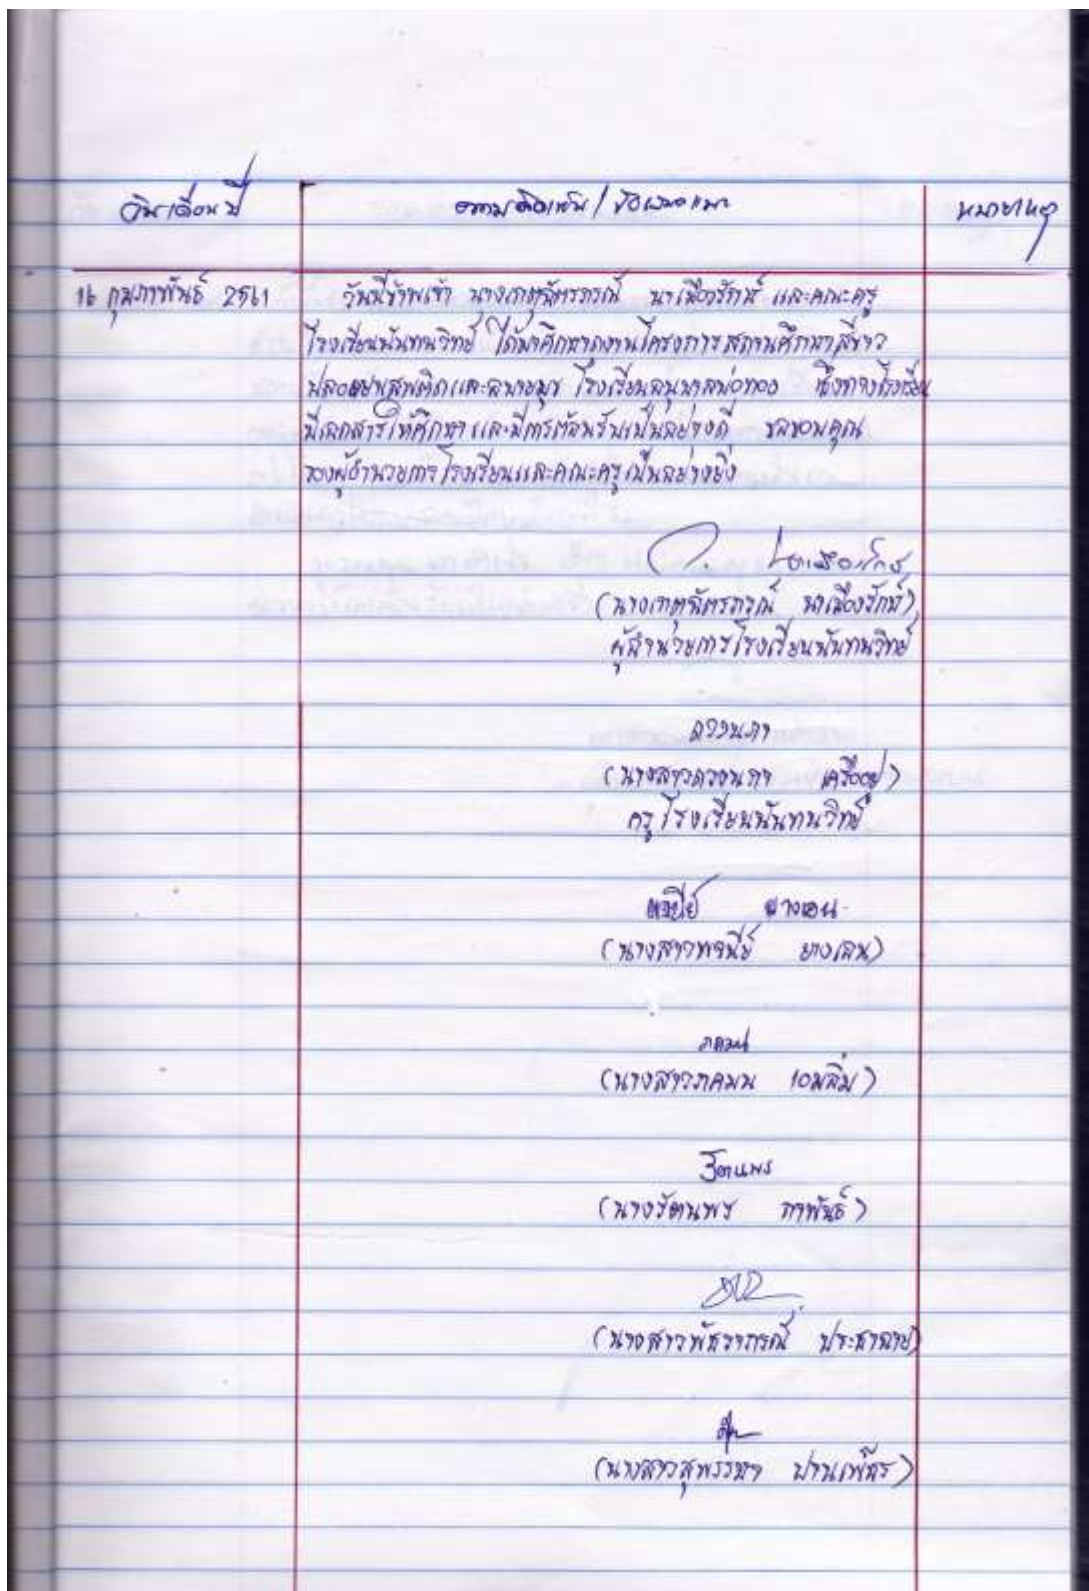 วัน เดือน ปี
ความคิดเห็น / ข้อเสนอแนะ
หมายเหตุ
16 กุมภาพันธ์ 2561
วันนี้ข้าพเจ้า นางเกตุฉัตรภรณ์ นาเมืองรักษ์ และคณะครู
โรงเรียนนันทนวิทย์ ได้มาศึกษาดูงานโครงการสถานศึกษาสีขาว
ปลอดยาเสพติดและอบายมุข โรงเรียนอนุบาลบ่อทอง ซึ่งทางโรงเรียน
มีเอกสารให้ศึกษา และมีการต้อนรับเป็นอย่างดี ขอขอบคุณ
ผู้อำนวยการโรงเรียนและคณะครูเป็นอย่างยิ่ง
นาเมืองรักษ์
(นางเกตุฉัตรภรณ์ นาเมืองรักษ์)
ผู้อำนวยการโรงเรียนนันทนวิทย์
ดวงนภา
(นางสาวดวงนภา เครืออยู่)
ครูโรงเรียนนันทนวิทย์
พจนีย์ ยางเอน
(นางสาวพจนีย์ ยางเอน)
ภคมน
(นางสาวภคมน เอมลิ่ม)
รัตนพร
(นางรัตนพร ภาพันธ์)
(นางสาวพัชราภรณ์)
(นางสาวสุพรรษา ปานเพ็ชร)